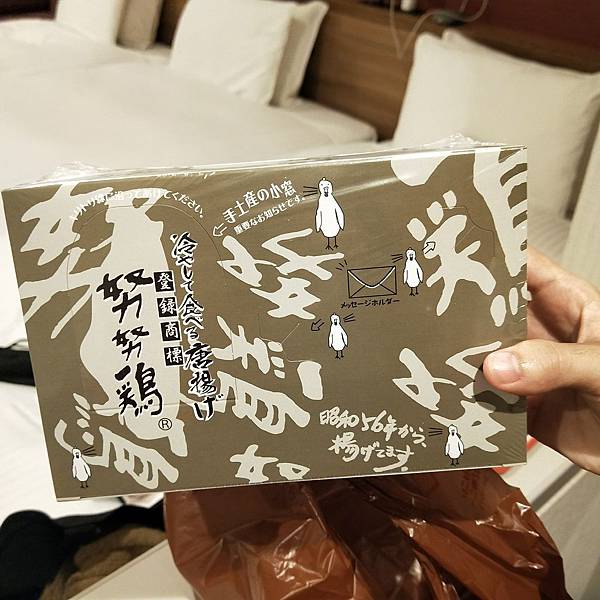 ミシン目に沿ってあけてください。
⇦手土産の小窓
重要なお知らせです。
冷やして食べる唐揚げ
登録商標
努努鶏®
メッセージホルダー
昭和56年から、
揚げてます!